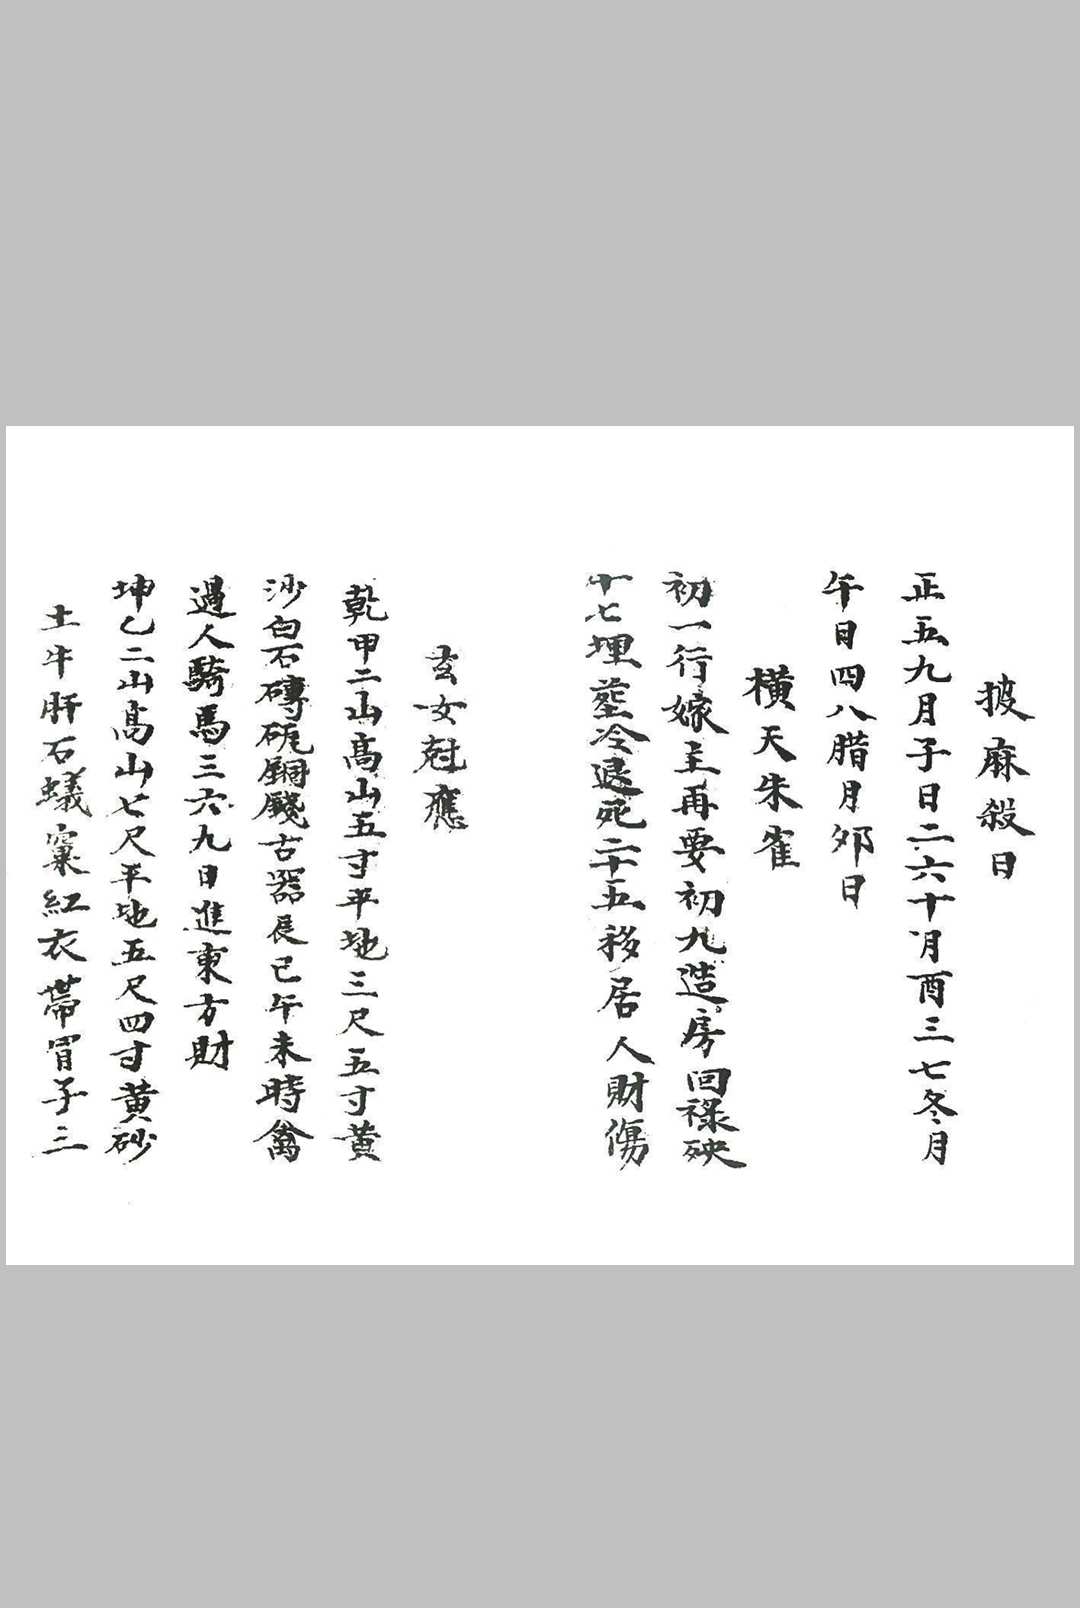 披麻殺日
正五九月子日二六十月酉三七冬月
午日四八腊月夘日
橫天朱雀
初一行嫁主再要初九造房回祿殃
十七埋塟冷退死二十五移居人財傷
玄女尅應
乾甲二山高山五寸平地三尺五寸黄
沙白石磚砣銅錢古器辰巳午未時禽
過人騎馬三六九日進東方財
坤乙二山高山七尺平地五尺四寸黄砂
土牛肝石蟻窠紅衣帶冐子三